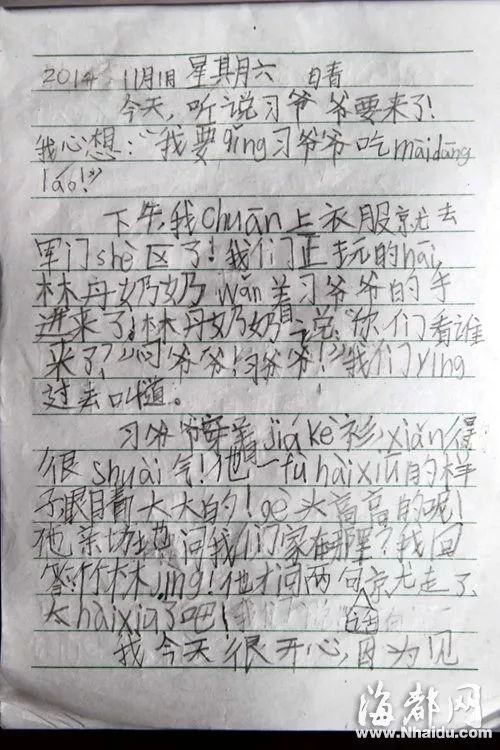 2014 11月1日 星其月六 日青
今天，听说习爷爷要来了！
我心想：“我要qǐng习爷爷吃màidāng
láo!”
下午，我chuān上衣服就去
军门shè区了！我们正玩的hāi，
林丹奶奶wǎn着习爷爷的手
进来了，林丹奶奶说“你们看谁
来了？”“习爷爷！习爷爷！”我们yíng
过去叫道。
习爷爷穿着jiákè衫，xiǎn得
很shuài气！他一fù hàixiū的样
子眼睛大大的！gè头高高的呢！
他亲切地问我们家在哪里？我回
答：竹林jìng！他才问两句就走了
太hàixiū了吧！ 话
我今天很开心，因为见
海都网
www.Nhaidu.com